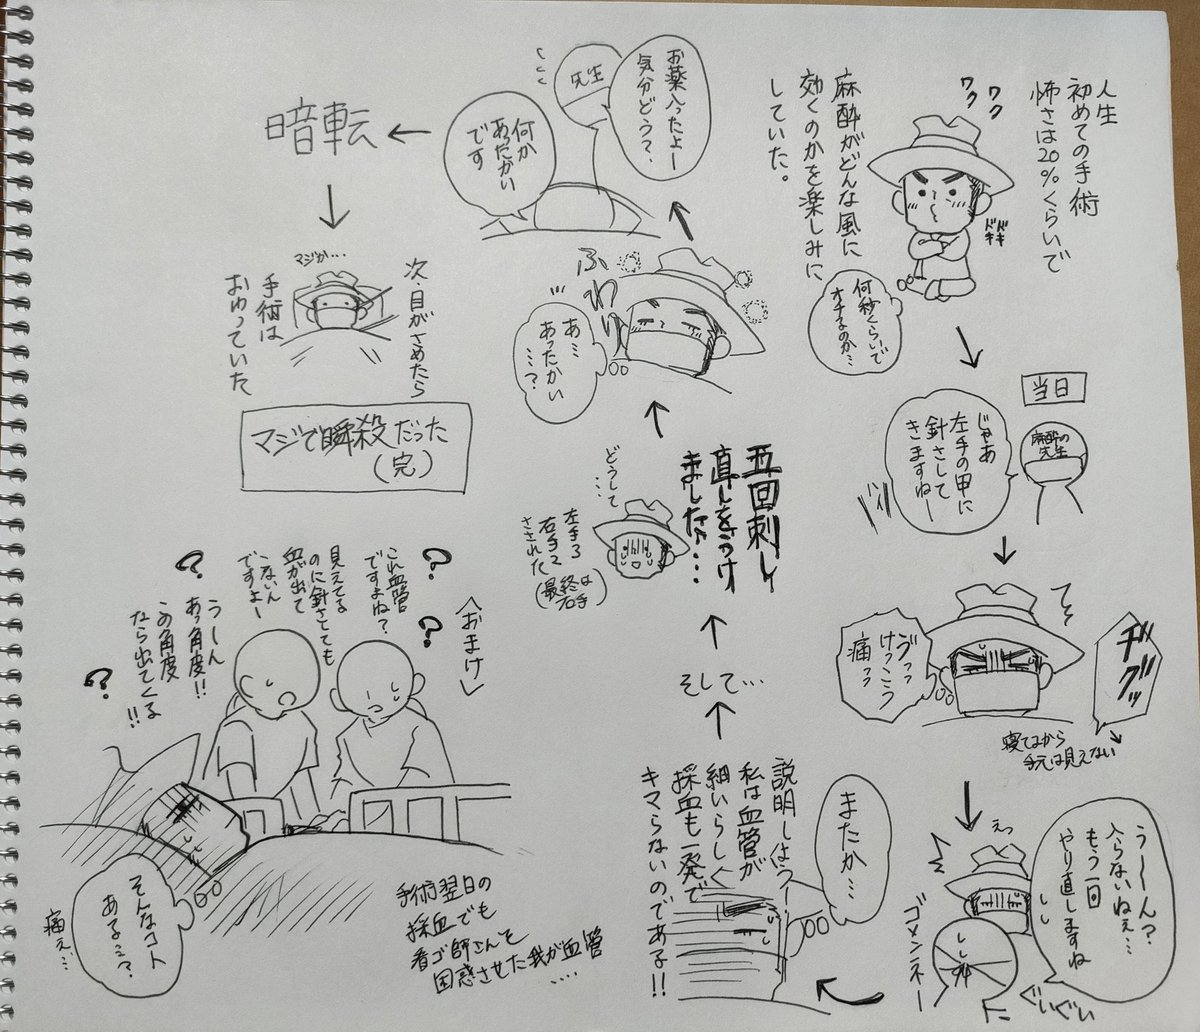 人生
初めての手術
怖さは20%くらいで
ワク
ワク
ドキ
ドキ
麻酔がどんな風に
効くのかを楽しみに
していた。
何秒くらいで
オチるのか…
当日
麻酔の
先生
じゃあ
左手の甲に
針さして
きますねー
ヂグッ
ゔッッ
けっこう
痛ッッ
寝てるから
手元は見えない
うーーん?
入らないねぇ…
もう一回
やり直しますね
えっ
ゴメンネー
ぐいぐい
またか…
説明しよう!
私は血管が
細いらしく
採血も一発で
キマらないのである!!
そして…
五回刺し
直しをうけ
ました…
どうして
…
左手3
右手2
さされた
(最終は
右手)
ふわり
あ…
あったかい
…?
お薬入ったよー
気分どう?
先生
何か
あったかい
です
暗転
次、目がさめたら
手術は
おわっていた
マジか…
マジで瞬殺だった
(完)
<おまけ>
これ血管
ですよね?
見えてる
のに針さしても
血が出て
こないん
ですよー
?
?
?
?
うーん
あっ角度!!
この角度
なら出てくる
!!
そんなコト
ある…?
痛ぇ…
手術翌日の
採血でも
看ゴ師さんを
困惑させた我が血管
…